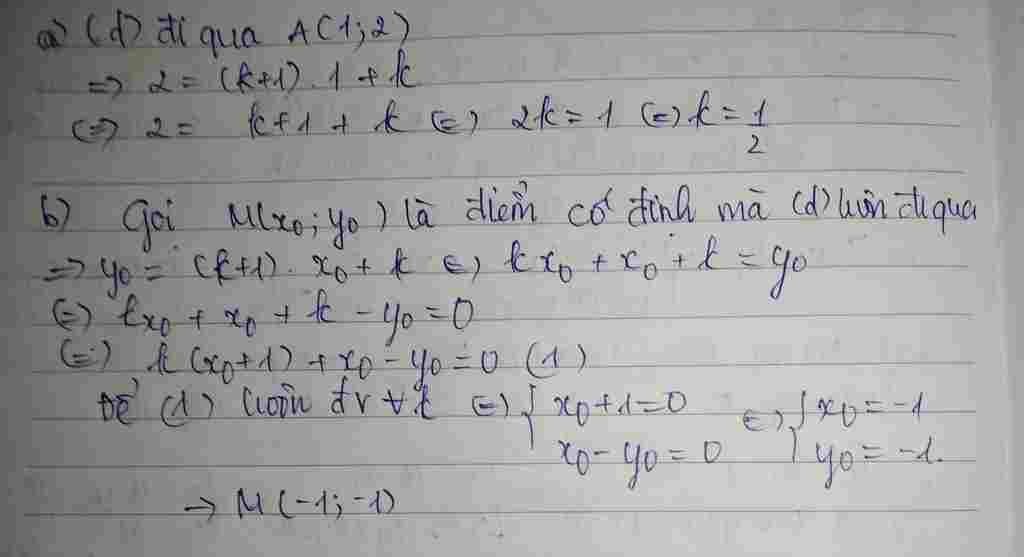 a) (d) đi qua A(1;2)
=> 2 = (k+1).1 + k
<=> 2 = k+1 + k <=> 2k = 1 <=> k = 1/2
b) Gọi M(x₀; y₀) là điểm cố định mà (d) luôn đi qua
=> y₀ = (k+1).x₀ + k <=> kx₀ + x₀ + k = y₀
<=> kx₀ + x₀ + k - y₀ = 0
<=> k(x₀+1) + x₀ - y₀ = 0 (1)
Để (1) luôn đr ∀k <=> { x₀+1 = 0 <=> { x₀ = -1
x₀ - y₀ = 0 y₀ = -1.
→ M(-1; -1)